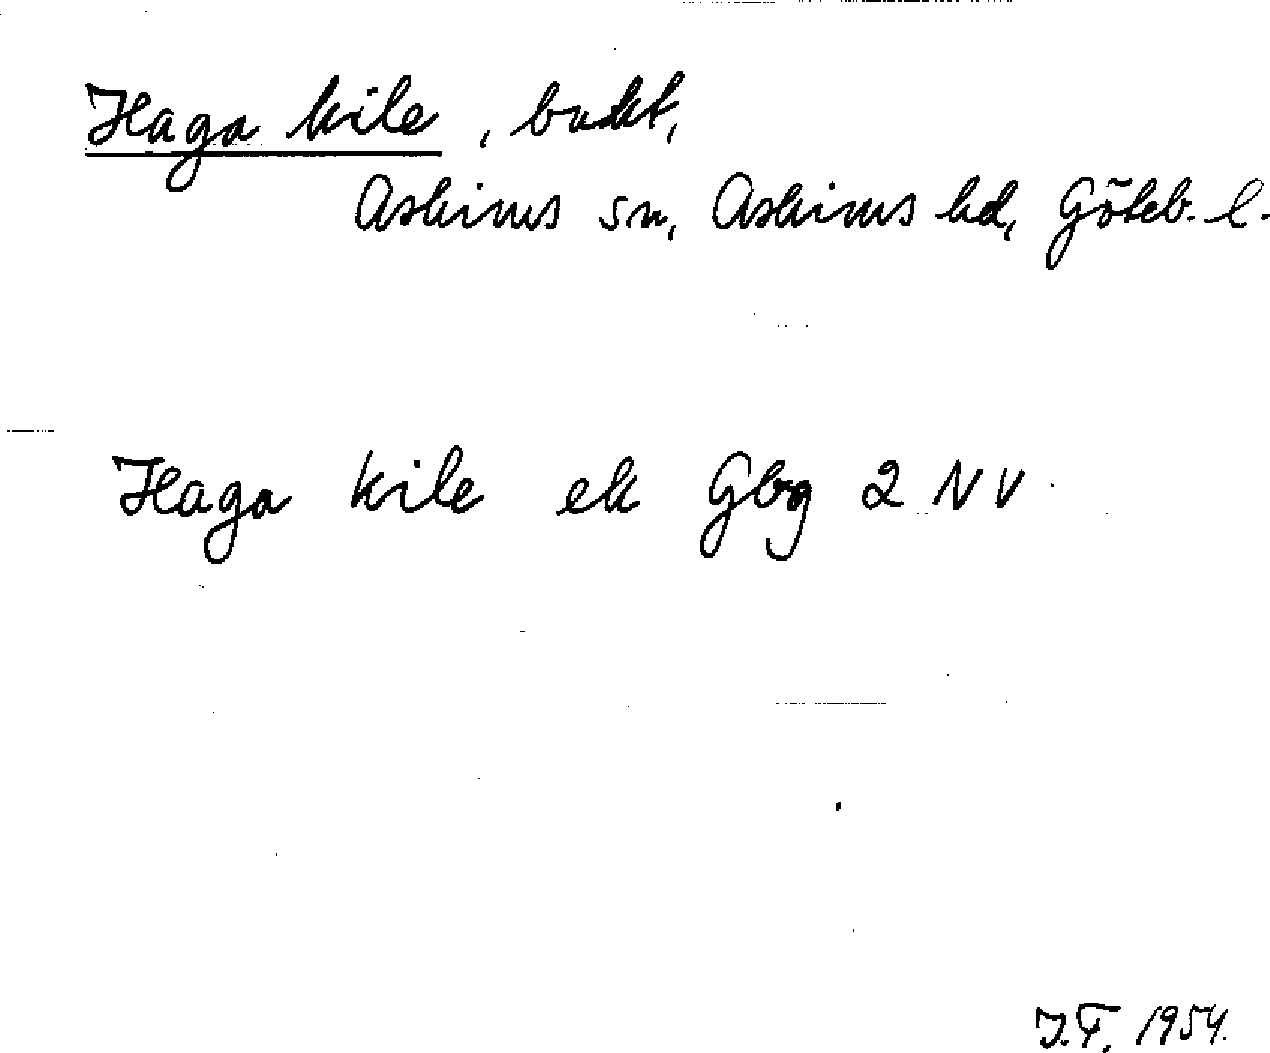 Haga kile, bukt,
Askims sn, Askims hd, Göteb. l.
Haga kile ek Gbg 2 NV
I.F. 1954.